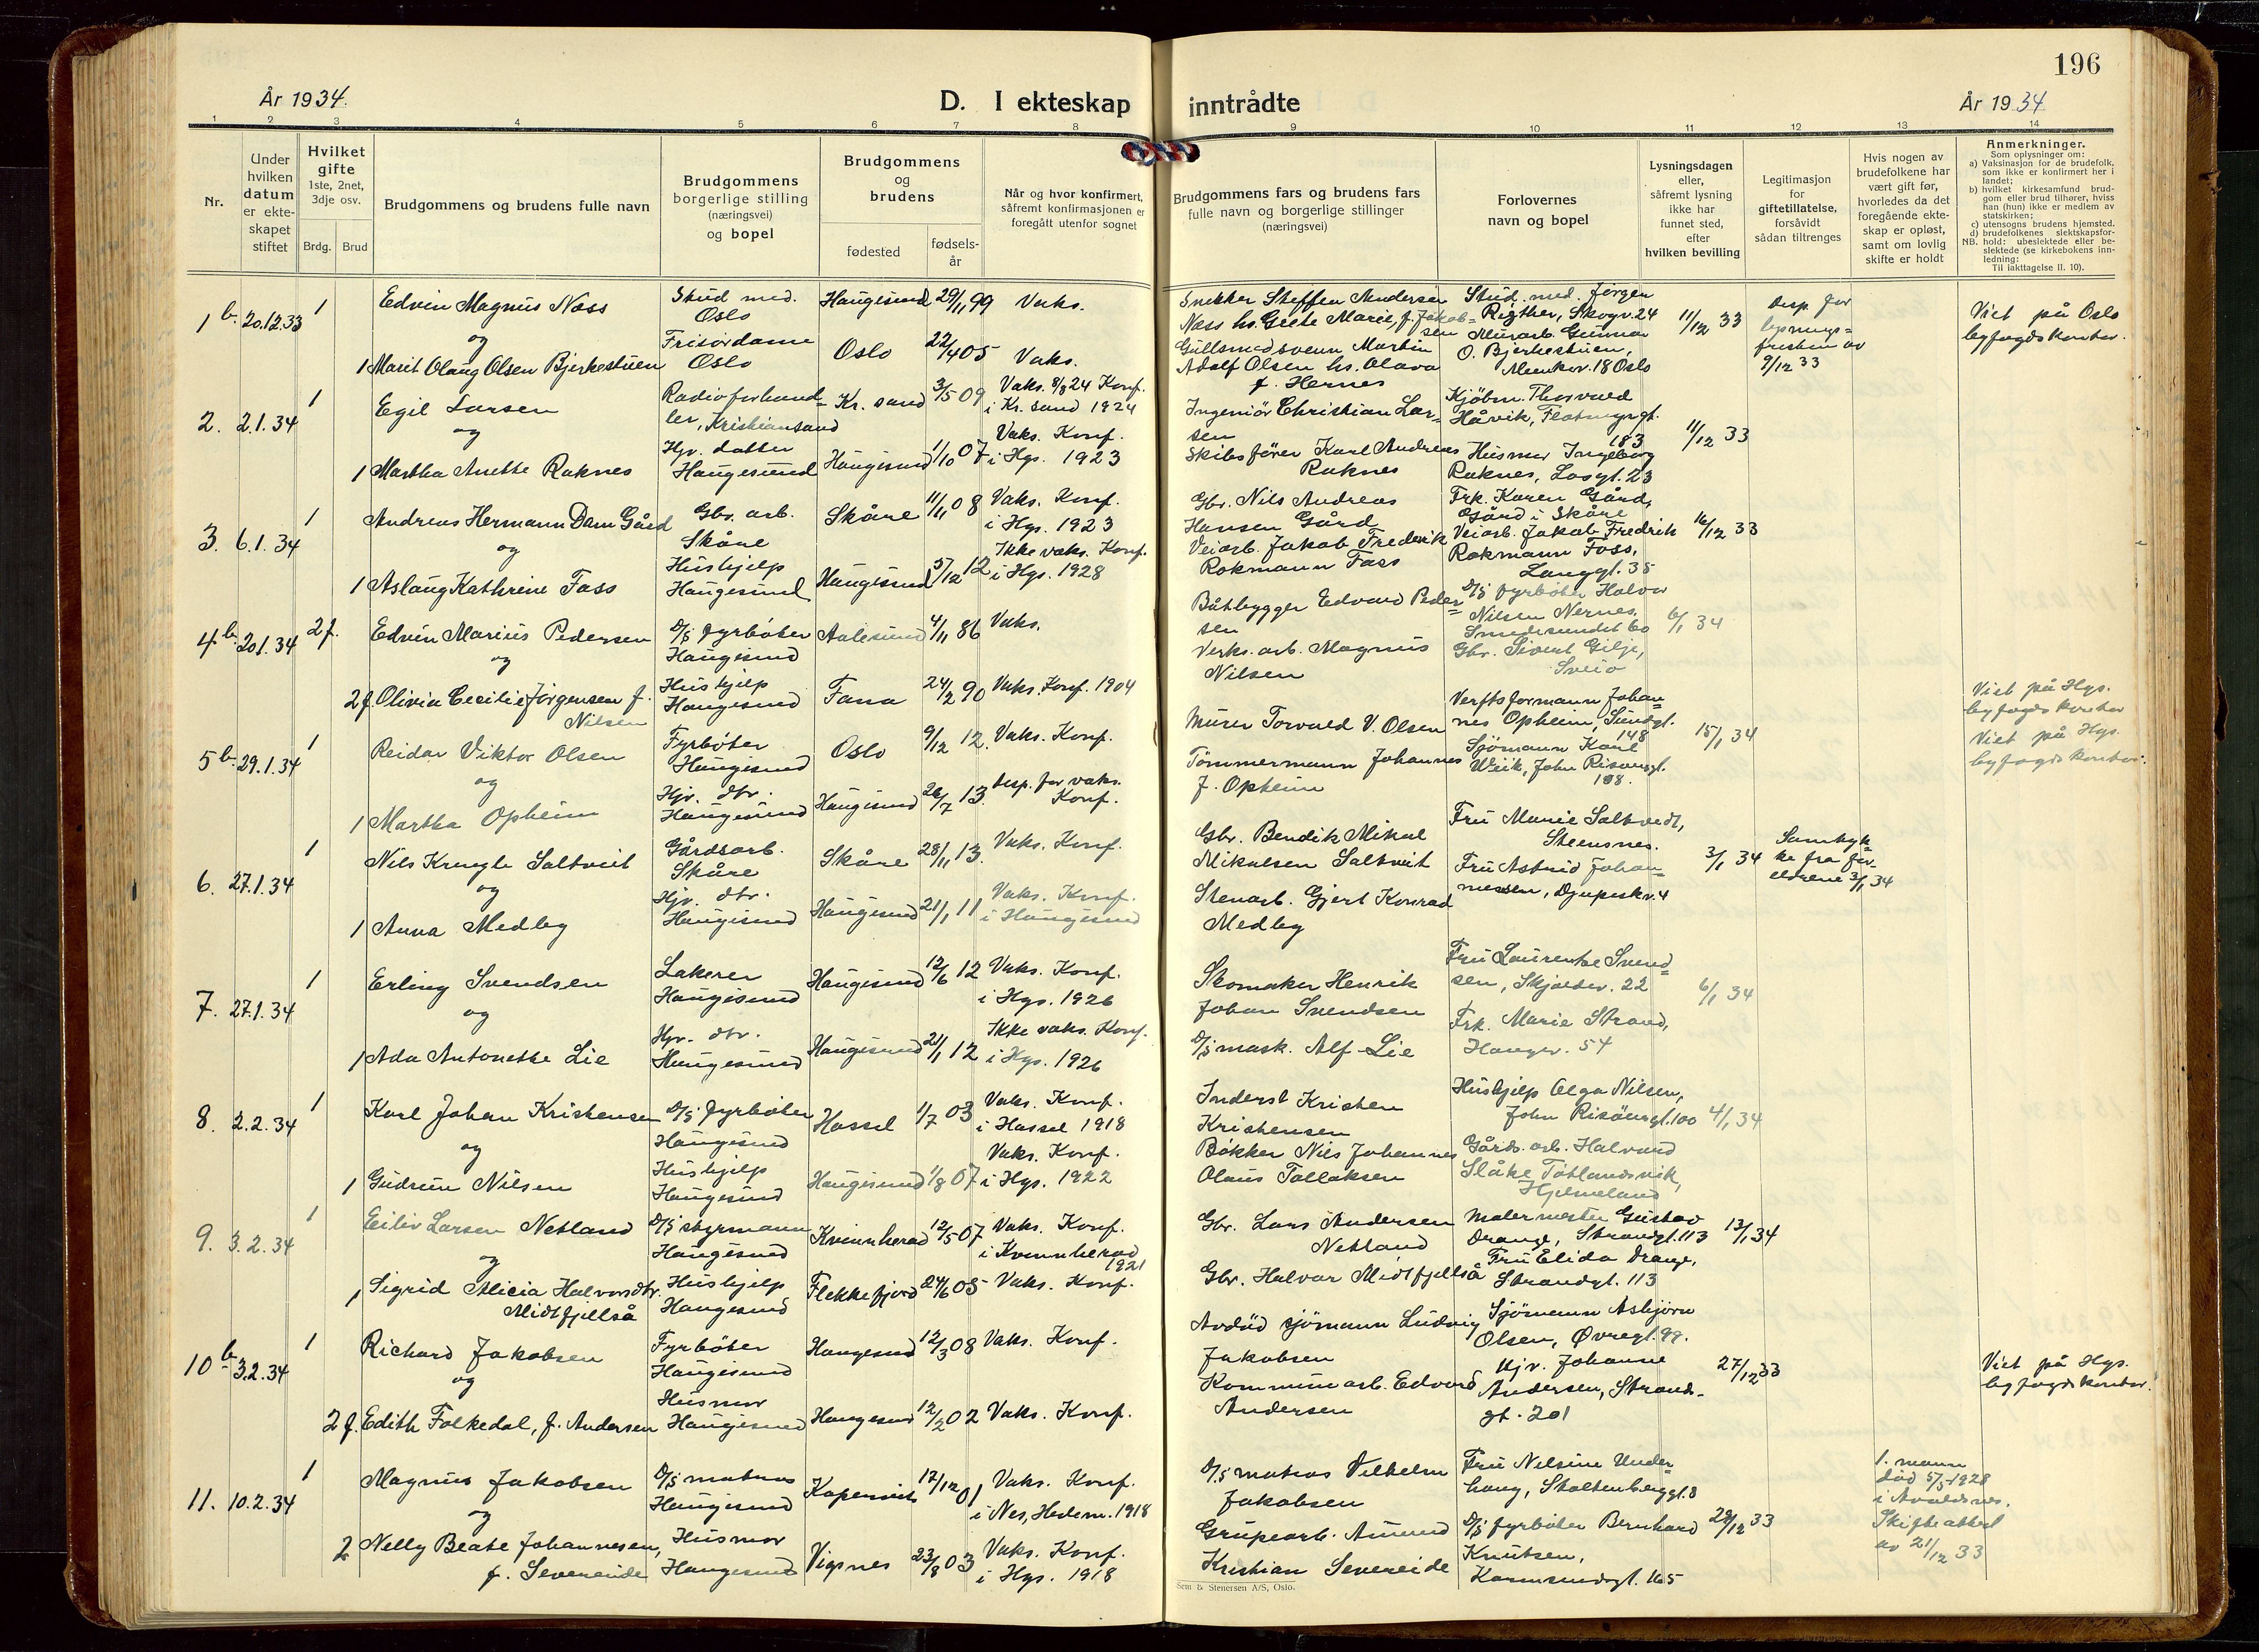 196
År 1934.
D. I ekteskap inntrådte
År 1934
1 2 3 4 5 6 7 8 9 10 11 12 13 14
Nr.
Under
hvilken
datum
er ekte-
skapet
stiftet
Hvilket
gifte
1ste, 2net,
3dje osv.
Brdg. Brud
Brudgommens og brudens fulle navn
Brudgommens
borgerlige stilling
(næringsvei)
og bopel
Brudgommens
og
brudens
fødested
fødsels-
år
Når og hvor konfirmert,
såfremt konfirmasjonen er
foregått utenfor sognet
Brudgommens fars og brudens fars
fulle navn og borgerlige stillinger
(næringsvei)
Forlovernes
navn og bopel
Lysningsdagen
eller,
såfremt lysning
ikke har
funnet sted,
efter
hvilken bevilling
Legitimasjon
for
giftetillatelse,
forsåvidt
sådan tiltrenges
Hvis nogen av
brudefolkene har
vært gift før,
hvorledes da det
foregående ekte-
skap er opløst,
samt om lovlig
skifte er holdt
Anmerkninger.
Som oplysninger om:
a) Vaksinasjon for de brudefolk,
som ikke er konfirmert her i
landet;
b) hvilket kirkesamfund brud-
gom eller brud tilhører, hviss
han (hun) ikke er medlem av
statskirken;
c) utensogns brudens hjemsted.
d) brudefolkenes slektskapsfor-
NB. hold: ubeslektede eller be-
slektede (se kirkebokens inn-
ledning:
Til iakttagelse II. 10).
1 b. 20.12.33 1 Edvin Magnus Næss
Stud med.
Oslo
Haugesund 29/11 99 Vaks.
og
1 Marit Olaug Olsen Bjerkestuen
Frisördame
Oslo
Oslo 22/4 05 Vaks.
Snekker Steffen Andersen
Næss hs. Grete Marie, f. Jakob-
sen
Gullsmedsvenn Martin
Adolf Olsen hs. Olava
f. Hernes
Stud. med. Jørgen
Rigther, Skogv. 24
Murarb. Gunnar
O. Bjerkestuen,
18 Oslo
11/12 33
Disp. for
lysnings-
fristen av
9/12 33
Viet på Oslo
byfogds kontor.
2. 2.1.34 1 Egil Larsen
Radioforhand-
ler, Kristiansand
Kr. sand 3/5 09
Vaks. 8/3 24 Konf.
i Kr. sand 1924
og
1 Martha Anette Raknes
Hjv. datter
Haugesund
Haugesund 1/10 07
Vaks. Konf.
i Hgs. 1923
Ingeniör Christian Lar-
sen
Skibsförer Karl Andreas
Raknes
Kjöbm. Thorvald
Håvik, Flotmyrgt.
183
Husmor Ingeborg
Raknes, Losgt. 23
11/12 33
3. 6.1.34 1 Andreas Hermann Dam Gård
Gbr. arb.
Skåre
Skåre 11/11 08
Vaks. Konf.
i Hgs. 1923
og
1 Aslaug Kathrine Foss
Hushjelp
Haugesund
Haugesund 5/12 12
Ikke vaks. Konf.
i Hgs. 1928
Gbr. Nils Andreas
Hansen Gård
Veiarb. Jakob Frederik
Rokmann Foss
Frk. Karen Gård,
Gård i Skåre
Veiarb. Jakob Fredrik
Rokmann Foss,
Langgt. 35
16/12 33
4 b. 20.1.34 2 f. Edvin Marius Pedersen
D/S fyrböter
Haugesund
Aalesund 4/11 86 Vaks.
og
2 f. Olivia Cecilie Jörgensen f.
Nilsen
Hushjelp
Haugesund
Fana 24/2 90 Vaks. Konf. 1904
Båtbygger Edvard Peder-
sen
Verks. arb. Magnus
Nilsen
D/S fyrböter Halvor
Nilsen Nernes,
Smedasundet 60
Gbr. Sivert Gilje,
Sveio
6/1 34
Viet på Hgs.
byfogds kontor
5 b. 29.1.34 1 Reidar Viktor Olsen
Fyrböter
Haugesund
Oslo 9/12 12. Vaks. Konf.
og
1 Martha Opheim
Hjv. dtr.
Haugesund
Haugesund 26/7 13.
Disp. for vaks.
Konf.
Murer Torvald V. Olsen
Tömmermann Johannes
J. Opheim
Verftsformann Johan-
nes Opheim, Sundgt.
148
Sjömann Karl
Wiik, John Risöensgt.
188.
15/1 34
Viet på Hgs.
byfogds kontor.
6. 27.1.34 1 Nils Kringle Saltveit
Gårdsarb.
Skåre
Skåre 28/11 13. Vaks. Konf.
og
1 Anna Medby
Hjv. dtr.
Haugesund
Haugesund 21/1 11
Vaks. Konf.
i Haugesund
Gbr. Bendik Mikal
Mikalsen Saltveit
Stenarb. Gjert Konrad
Medby
Fru Marie Saltvedt,
Steensnes.
Fru Astrid Johan-
nessen, Djupaskv. 4
3/1 34
Samtyk-
ke fra for-
eldrene 3/1 34
7. 27.1.34 1 Erling Svendsen
Lakerer
Haugesund
Haugesund 12/6 12
Vaks. Konf.
i Hgs. 1926
og
1 Ada Antonette Lie
Hjv. dtr.
Haugesund
Haugesund 21/1 12
Ikke vaks. Konf.
i Hgs. 1926
Skomaker Henrik
Johan Svendsen
D/S mask. Alf Lie
Fru Laurentse Svend-
sen, Skjoldsv. 22
Frk. Marie Strand,
Haugev. 54
6/1 34
8. 2.2.34 1 Karl Johan Kristensen
D/S fyrböter
Haugesund
Hassel 1/7 03
Vaks. Konf.
i Hassel 1918
og
1 Gudrun Nilsen
Hushjelp
Haugesund
Haugesund 1/8 07
Vaks. Konf.
i Hgs. 1922
Inderst Kristen
Kristensen
Bøkker Nils Johannes
Olaus Tollaksen
Hushjelp Olga Nilsen,
John Risöensgt. 100
Gårds. arb. Halvard
Slåke Tøtlandsvik,
Hjelmeland
4/1 34
9. 3.2.34 1 Eiliv Larsen Netland
D/S styrmann
Haugesund
Kvinnherad 12/5 07
Vaks. Konf.
i Kvinnherad
1921
og
1 Sigrid Alicia Halvorsdtr.
Midtfjellså
Hushjelp
Haugesund
Flekkefjord 24/6 05 Vaks. Konf.
Gbr. Lars Andersen
Netland
Gbr. Halvor Midtfjellså
Malermester Gustav
Drange, Strandgt. 113
Fru Elida Drange,
Strandgt. 113
13/1 34
10 b. 3.2.34 1 Richard Jakobsen
Fyrböter
Haugesund
Haugesund 12/3 08 Vaks. Konf.
og
2 f. Edith Folkedal, f. Andersen
Husmor
Haugesund
Haugesund 12/2 02 Vaks. Konf.
Avdöd sjömann Ludvig
Jakobsen
Kommunearb. Edvard
Andersen
Sjömann Asbjörn
Olsen, Øvregt. 99.
Hjv. Johanne
Andersen, Strand-
gt. 201
27/12 33
Viet på Hgs.
byfogds kontor.
11. 10.2.34 1 Magnus Jakobsen
D/S matros
Haugesund
Kopervik 17/12 01
Vaks. Konf.
i Nes, Hedem. 1918
og
2 Nelly Beate Johannesen,
f. Severeide
Husmor
Haugesund
Vigsnes 23/8 03
Vaks. Konf.
i Hgs. 1918
D/S matros Vilhelm
Jakobsen
Grupearb. Amund
Kristian Severeide
Fru Nelsine Under-
haug, Stoltenberggt. 8
D/S fyrböter Bernhard
Knutsen,
Karmsundgt. 165
28/12 33
1. mann
död 5/5-1928
i Avaldsnes.
Skifteattest
av 21/12 33
Sem & Stenersen A/S, Oslo.